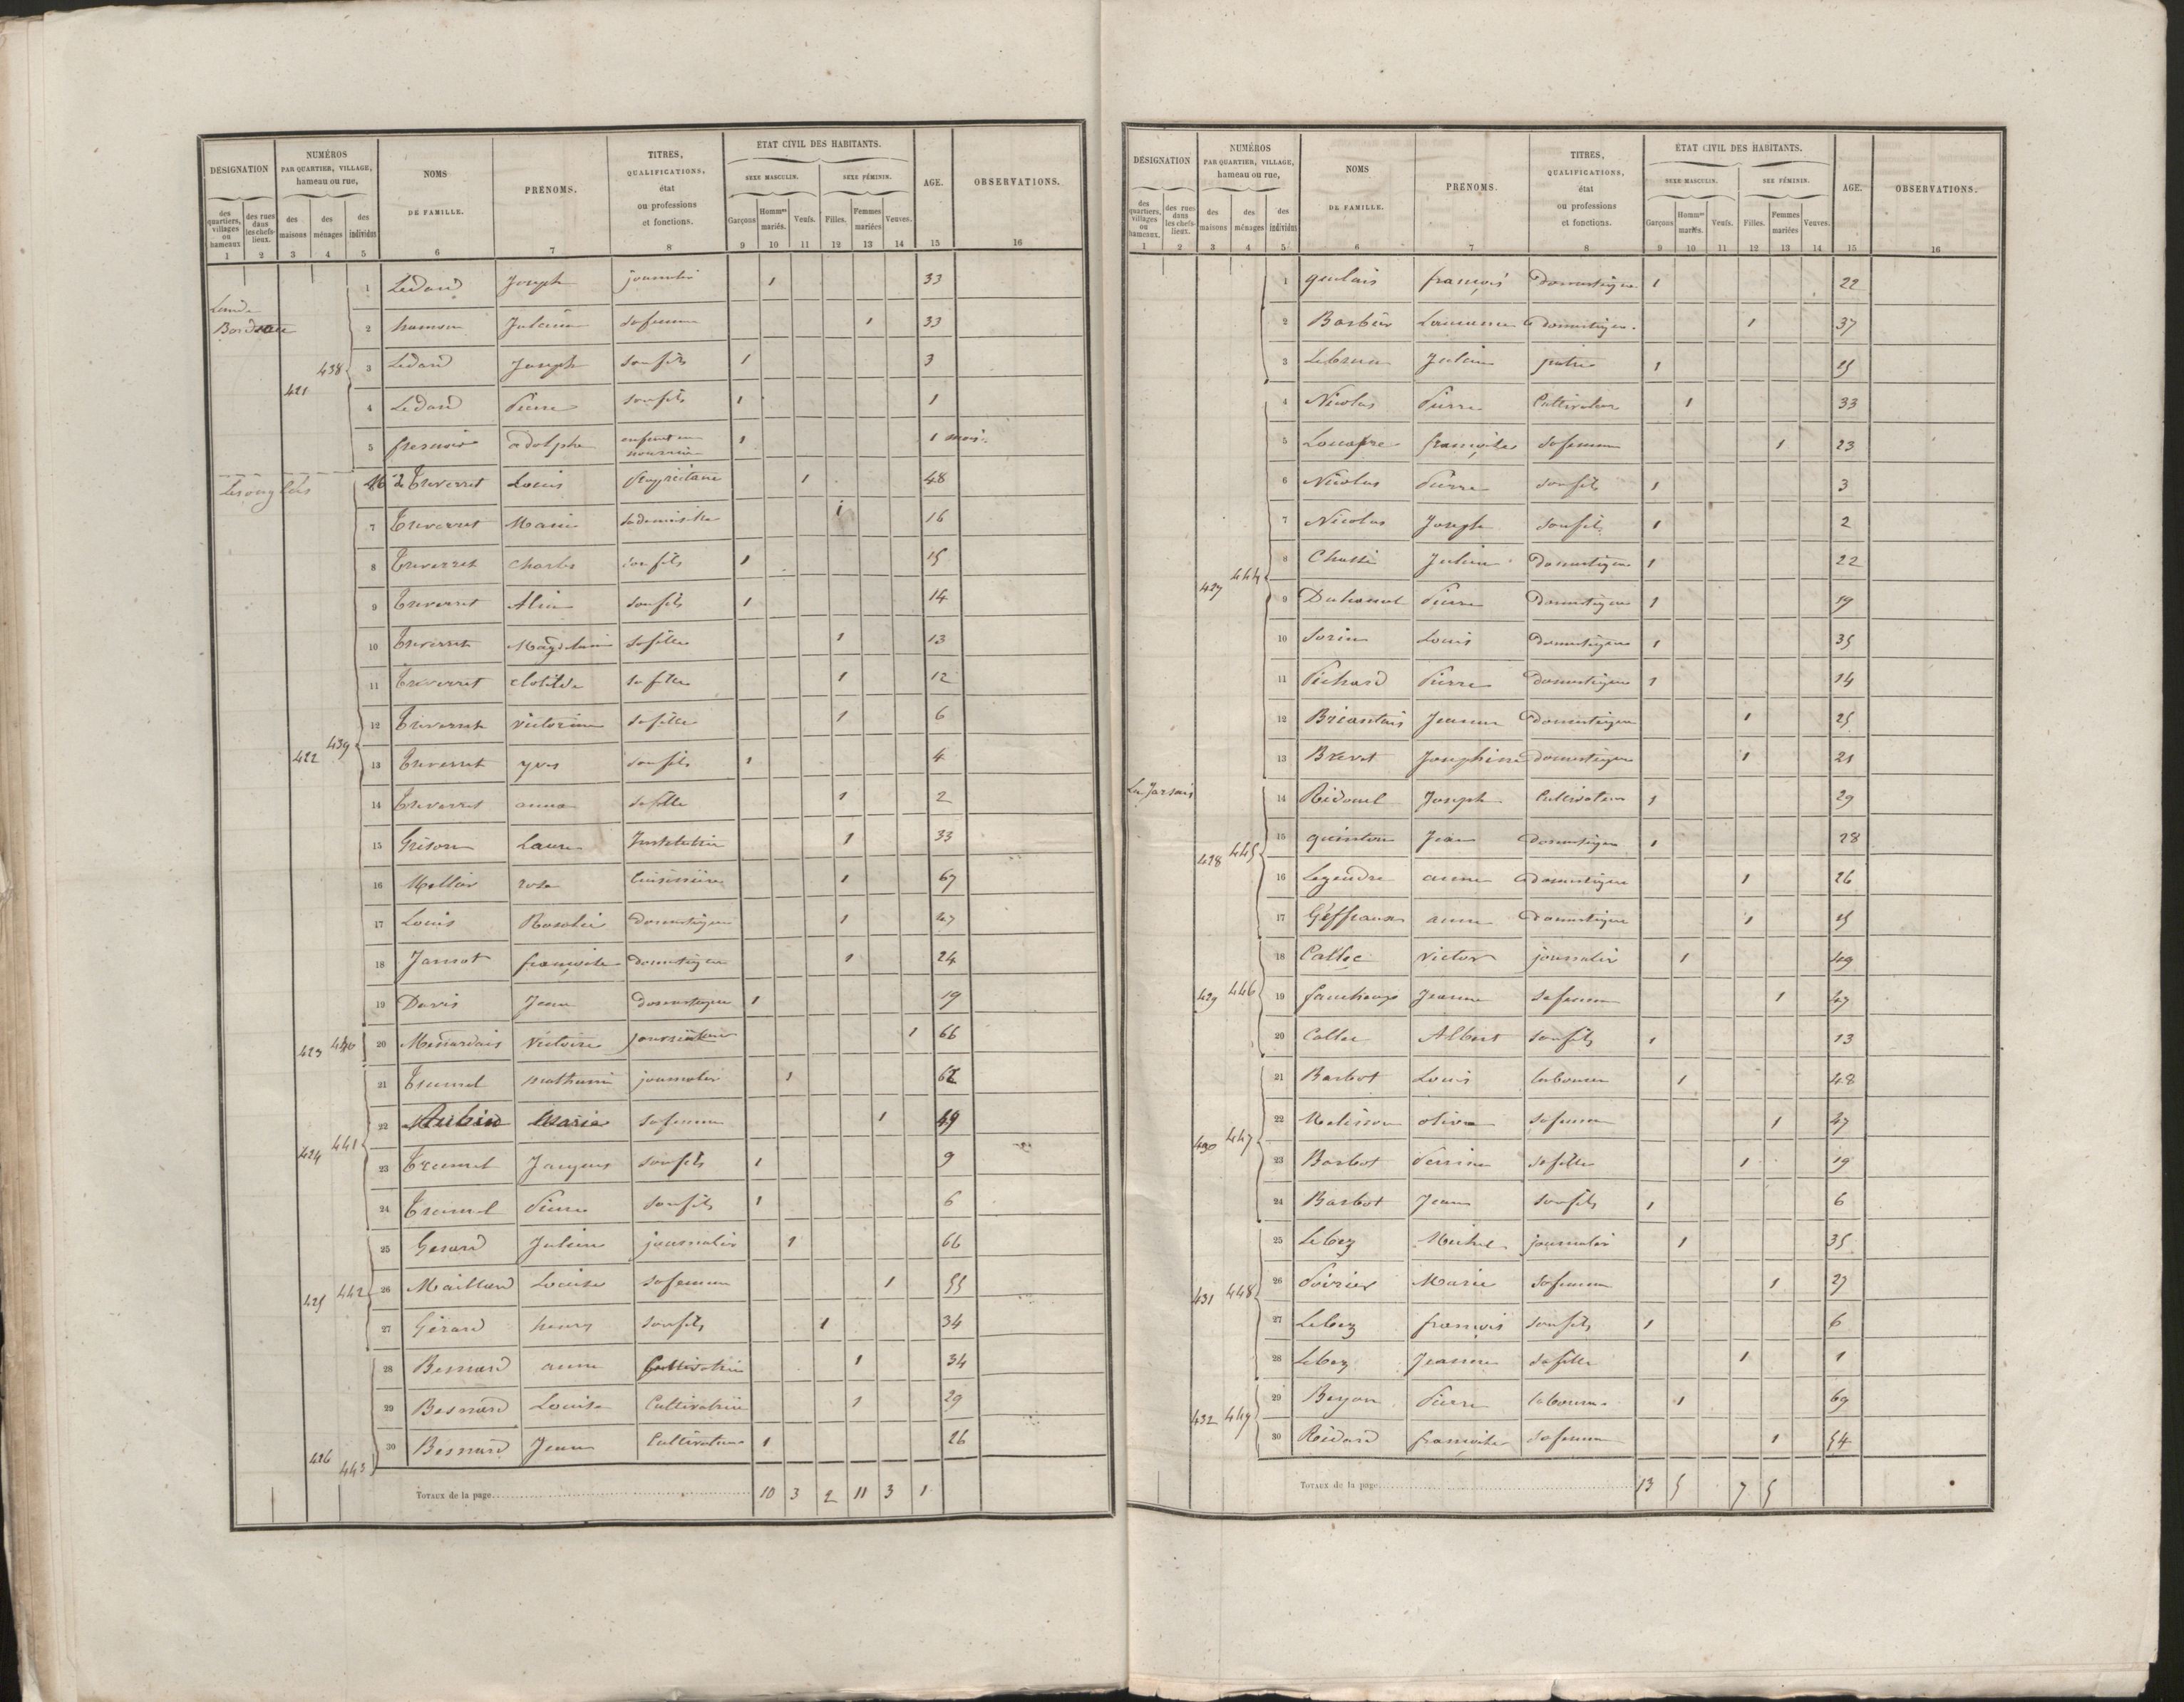 DÉSIGNATION
NUMÉROS
PAR QUARTIER, VILLAGE,
hameau ou rue,
NOMS
DE FAMILLE.
PRÉNOMS.
TITRES,
QUALIFICATIONS,
état
ou professions
et fonctions.
ÉTAT CIVIL DES HABITANTS.
SEXE MASCULIN.
SEXE FÉMININ.
AGE.
OBSERVATIONS.
des quartiers, villages ou hameaux
des rues dans les chefs-lieux.
des maisons
des ménages
des individus
Garçons
Hommes mariés.
Veufs.
Filles.
Femmes mariées
Veuves.
1 2 3 4 5 6 7 8 9 10 11 12 13 14 15 16
Bordeau
421 438
1 Ledard Joseph journalier 1 33
2 hamon Julienne sa femme 1 33
3 Ledard Joseph son fils 1 3
4 Ledard Pierre son fils 1 1
5 adolphe enfant en nourrice 1 1 mois
422 439
6 de Treverret Louis Propriétaire 1 48
7 Treverret Marie sa demoiselle 1 16
8 Treverret Charles son fils 1 15
9 Treverret son fils 1 14
10 Treverret Magdelaine sa fille 1 13
11 Treverret clotilde sa fille 1 12
12 Treverret victorine sa fille 1 6
13 Treverret yves son fils 1 4
14 Treverret anna sa fille 1 2
15 Grison Laure Institutrice 1 33
16 rose Cuisinière 1 67
17 Louis Rosalie domestique 1 47
18 Jamot françoise domestique 1 24
19 Davis Jean domestique 1 19
423 440
20 Menardais Victoire 1 66
424 441
21 Tremel mathurin journalier 1 62
22 Aubin Marie sa femme 1 49
23 Tremel Jacques son fils 1 9
24 Tremel Pierre son fils 1 6
425 442
25 Gerard Julien journalier 1 66
26 Maillard Louise sa femme 1 55
27 Gérard henry son fils 1 34
426 443
28 Besnard anne Cultivatrice 1 34
29 Besnard Louise Cultivatrice 1 29
30 Besnard Jean Cultivateur 1 26
TOTAUX de la page 10 3 2 11 3 1
DÉSIGNATION
NUMÉROS
PAR QUARTIER, VILLAGE,
hameau ou rue,
NOMS
DE FAMILLE.
PRÉNOMS.
TITRES,
QUALIFICATIONS,
état
ou professions
et fonctions.
ÉTAT CIVIL DES HABITANTS.
SEXE MASCULIN.
SEXE FÉMININ.
AGE.
OBSERVATIONS.
des quartiers, villages ou hameaux.
des rues dans les chefs-lieux.
des maisons
des ménages
des individus
Garçons
Hommes mariés.
Veufs.
Filles.
Femmes mariées
Veuves.
1 2 3 4 5 6 7 8 9 10 11 12 13 14 15 16
1 françois domestique 1 22
2 Barbier domestique 1 37
3 Lebrun Julien patre 1 15
427 444
4 Nicolas Pierre Cultivateur 1 33
5 françoise sa femme 1 23
6 Nicolas Pierre son fils 1 3
7 Nicolas Joseph son fils 1 2
8 Julien domestique 1 22
9 Pierre domestique 1 19
10 Sorin Louis domestique 1 35
11 Pichard Pierre domestique 1 14
12 Briantais Jeanne domestique 1 25
13 Brevet Josephine domestique 1 21
428 445
14 Ridouel Joseph Cultivateur 1 29
15 quinton Jean domestique 1 28
16 Legendre anne domestique 1 26
17 anne domestique 1 15
429 446
18 Callec victor journalier 1 49
19 Jeanne sa femme 1 47
20 Callec Albert son fils 1 13
430 447
21 Barbot Louis laboureur 1 48
22 olive sa femme 1 47
23 Barbot Perrine sa fille 1 19
24 Barbot Jean son fils 1 6
431 448
25 Lebez Michel journalier 1 35
26 Poirier Marie sa femme 1 27
27 Lebez françois son fils 1 6
28 Lebez Jeanne sa fille 1 1
432 449
29 Pierre laboureur 1 69
30 françoise sa femme 1 54
TOTAUX de la page 13 5 7 5